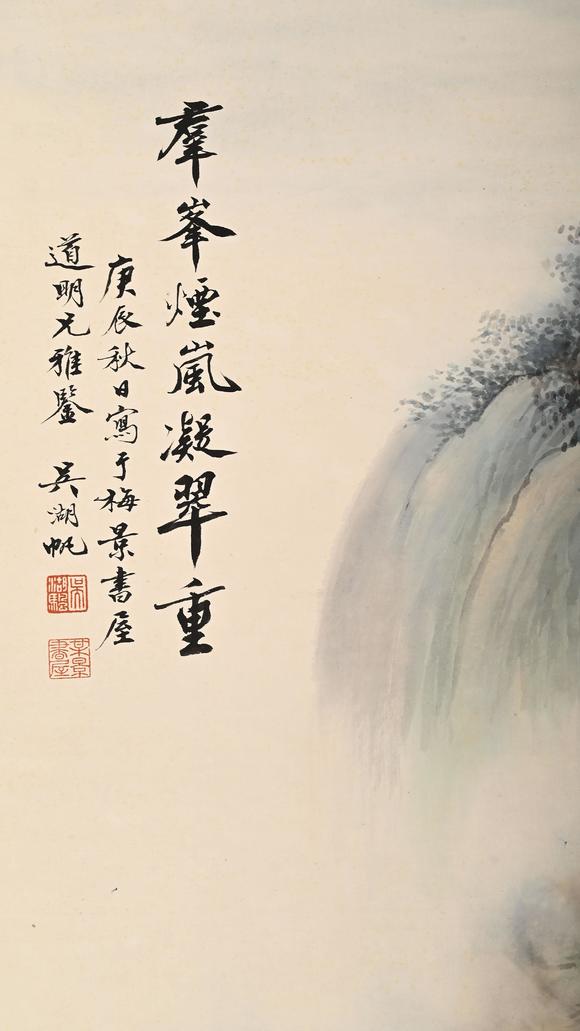 羣峯煙嵐凝翠重
庚辰秋日寫于梅景書屋
道明兄雅鑒 吳湖帆
吳湖驂
某景書屋